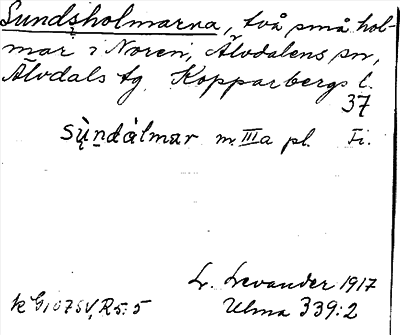 Sundsholmarna, två små hol-
mar i Noren, Älvdalens sn,
Älvdals tg Kopparbergs l.
37
sų̀ndàlmar m. IIIa pl. Fi.
L. Levander 1917
k G1075V, R5:5 Ulma 339:2